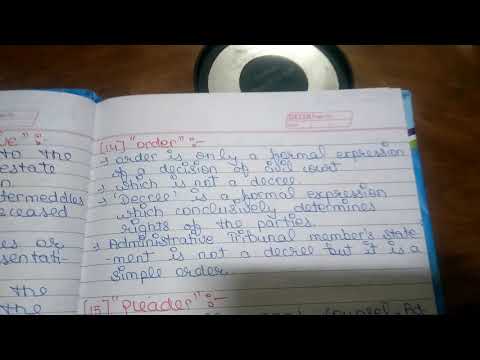 [14] "order" :-
→ order is only a formal expression
of a decision of civil court
→ which is not a decree.
→ 'Decree' is a formal expression
which conclusively determines
rights of the parties.
→ Administrative Tribunal member's state
-ment is not a decree but it is a
simple order.
[15] "Pleader" :-
to the
estate
termeddles
ceased
es or
esentati-
the
the